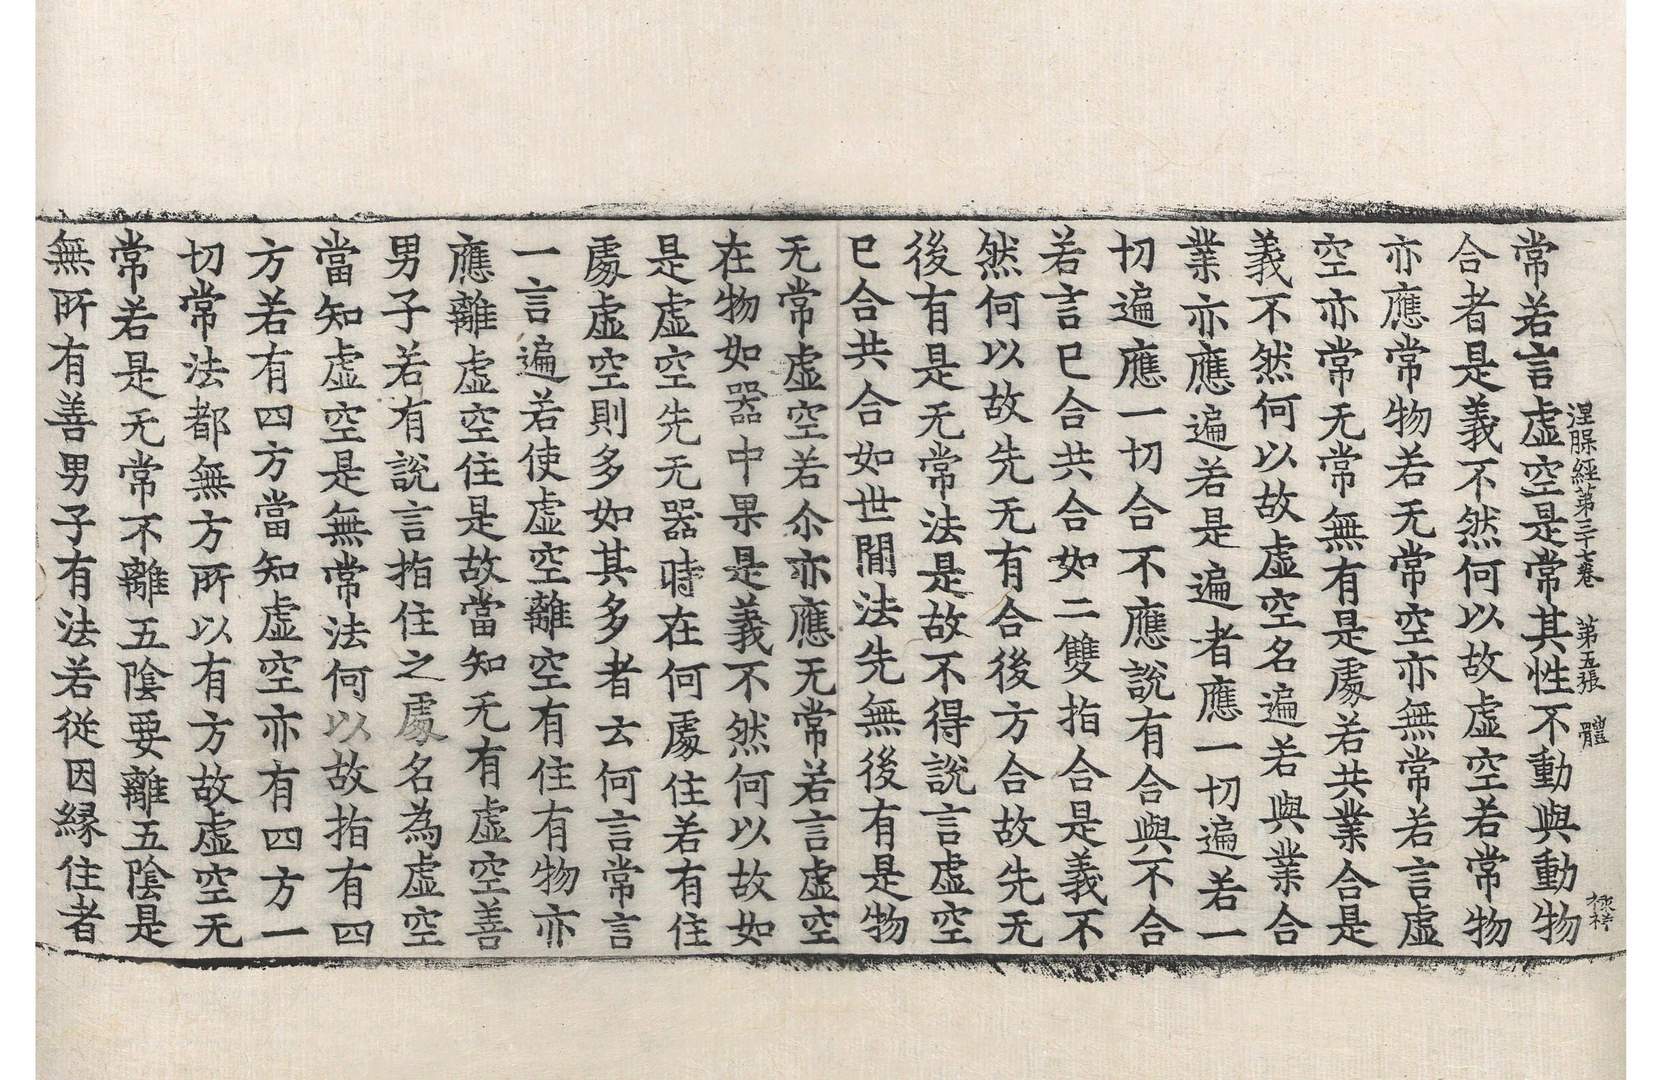 涅槃經第三十七卷　第五張　體
常若言虛空是常其性不動與動物
合者是義不然何以故虛空若常物
亦應常物若无常空亦無常若言虛
空亦常无常無有是處若共業合是
義不然何以故虛空名遍若與業合
業亦應遍若是遍者應一切遍若一
切遍應一切合不應說有合與不合
若言已合共合如二雙指合是義不
然何以故先无有合後方合故先无
後有是无常法是故不得說言虛空
已合共合如世閒法先無後有是物
无常虛空若尒亦應无常若言虛空
在物如器中果是義不然何以故如
是虛空先无器時在何處住若有住
處虛空則多如其多者云何言常言
一言遍若使虛空離空有住有物亦
應離虛空住是故當知无有虛空善
男子若有說言指住之處名為虛空
當知虛空是無常法何以故指有四
方若有四方當知虛空亦有四方一
切常法都無方所以有方故虛空无
常若是无常不離五陰要離五陰是
無所有善男子有法若從因縁住者